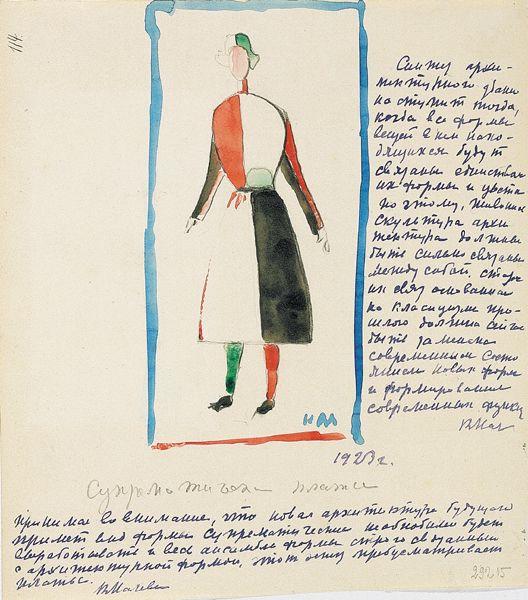 114.
Синтез архи-
тектурного здани
наступит тогда,
когда все формы
вещей в нем нахо-
дящихся будут
связаны единством
их формы и цвета
по этому, живопись
скульптура архи
тектура должны
быть сильно связаны
между собой,
их связ основанная
на класицизме про-
шлого должна
быть заменена
современным
новых форм
и формирования
современных
КМал
КМ
1923 г.
Супрематическ платье
принимая во внимание, что новая архитектура будущего
примет вид формы супрематические необходимо будет
выработать и весь ансамбль формы строго связанный
с архитектурной формою, этот эскиз предусматривает
платье.
КМалевич